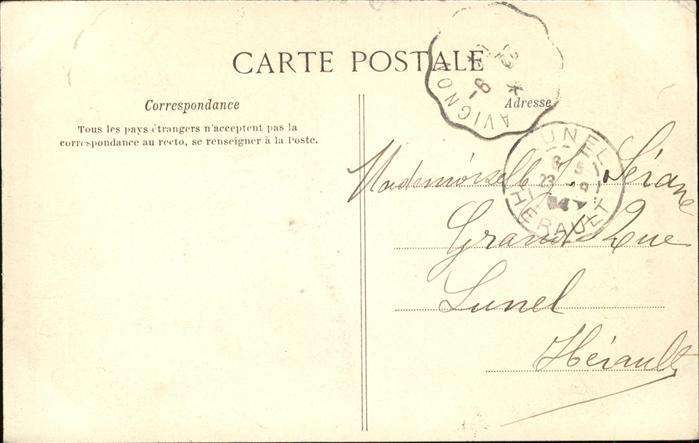 CARTE POSTALE
Correspondance
Tous les pays étrangers n'acceptent pas la
correspondance au recto, se renseigner à la Poste.
Adresse
AVIGNO
LUNEL
HÉRAULT
Mademoiselle Sérane
Grand Rue
Lunel
Hérault